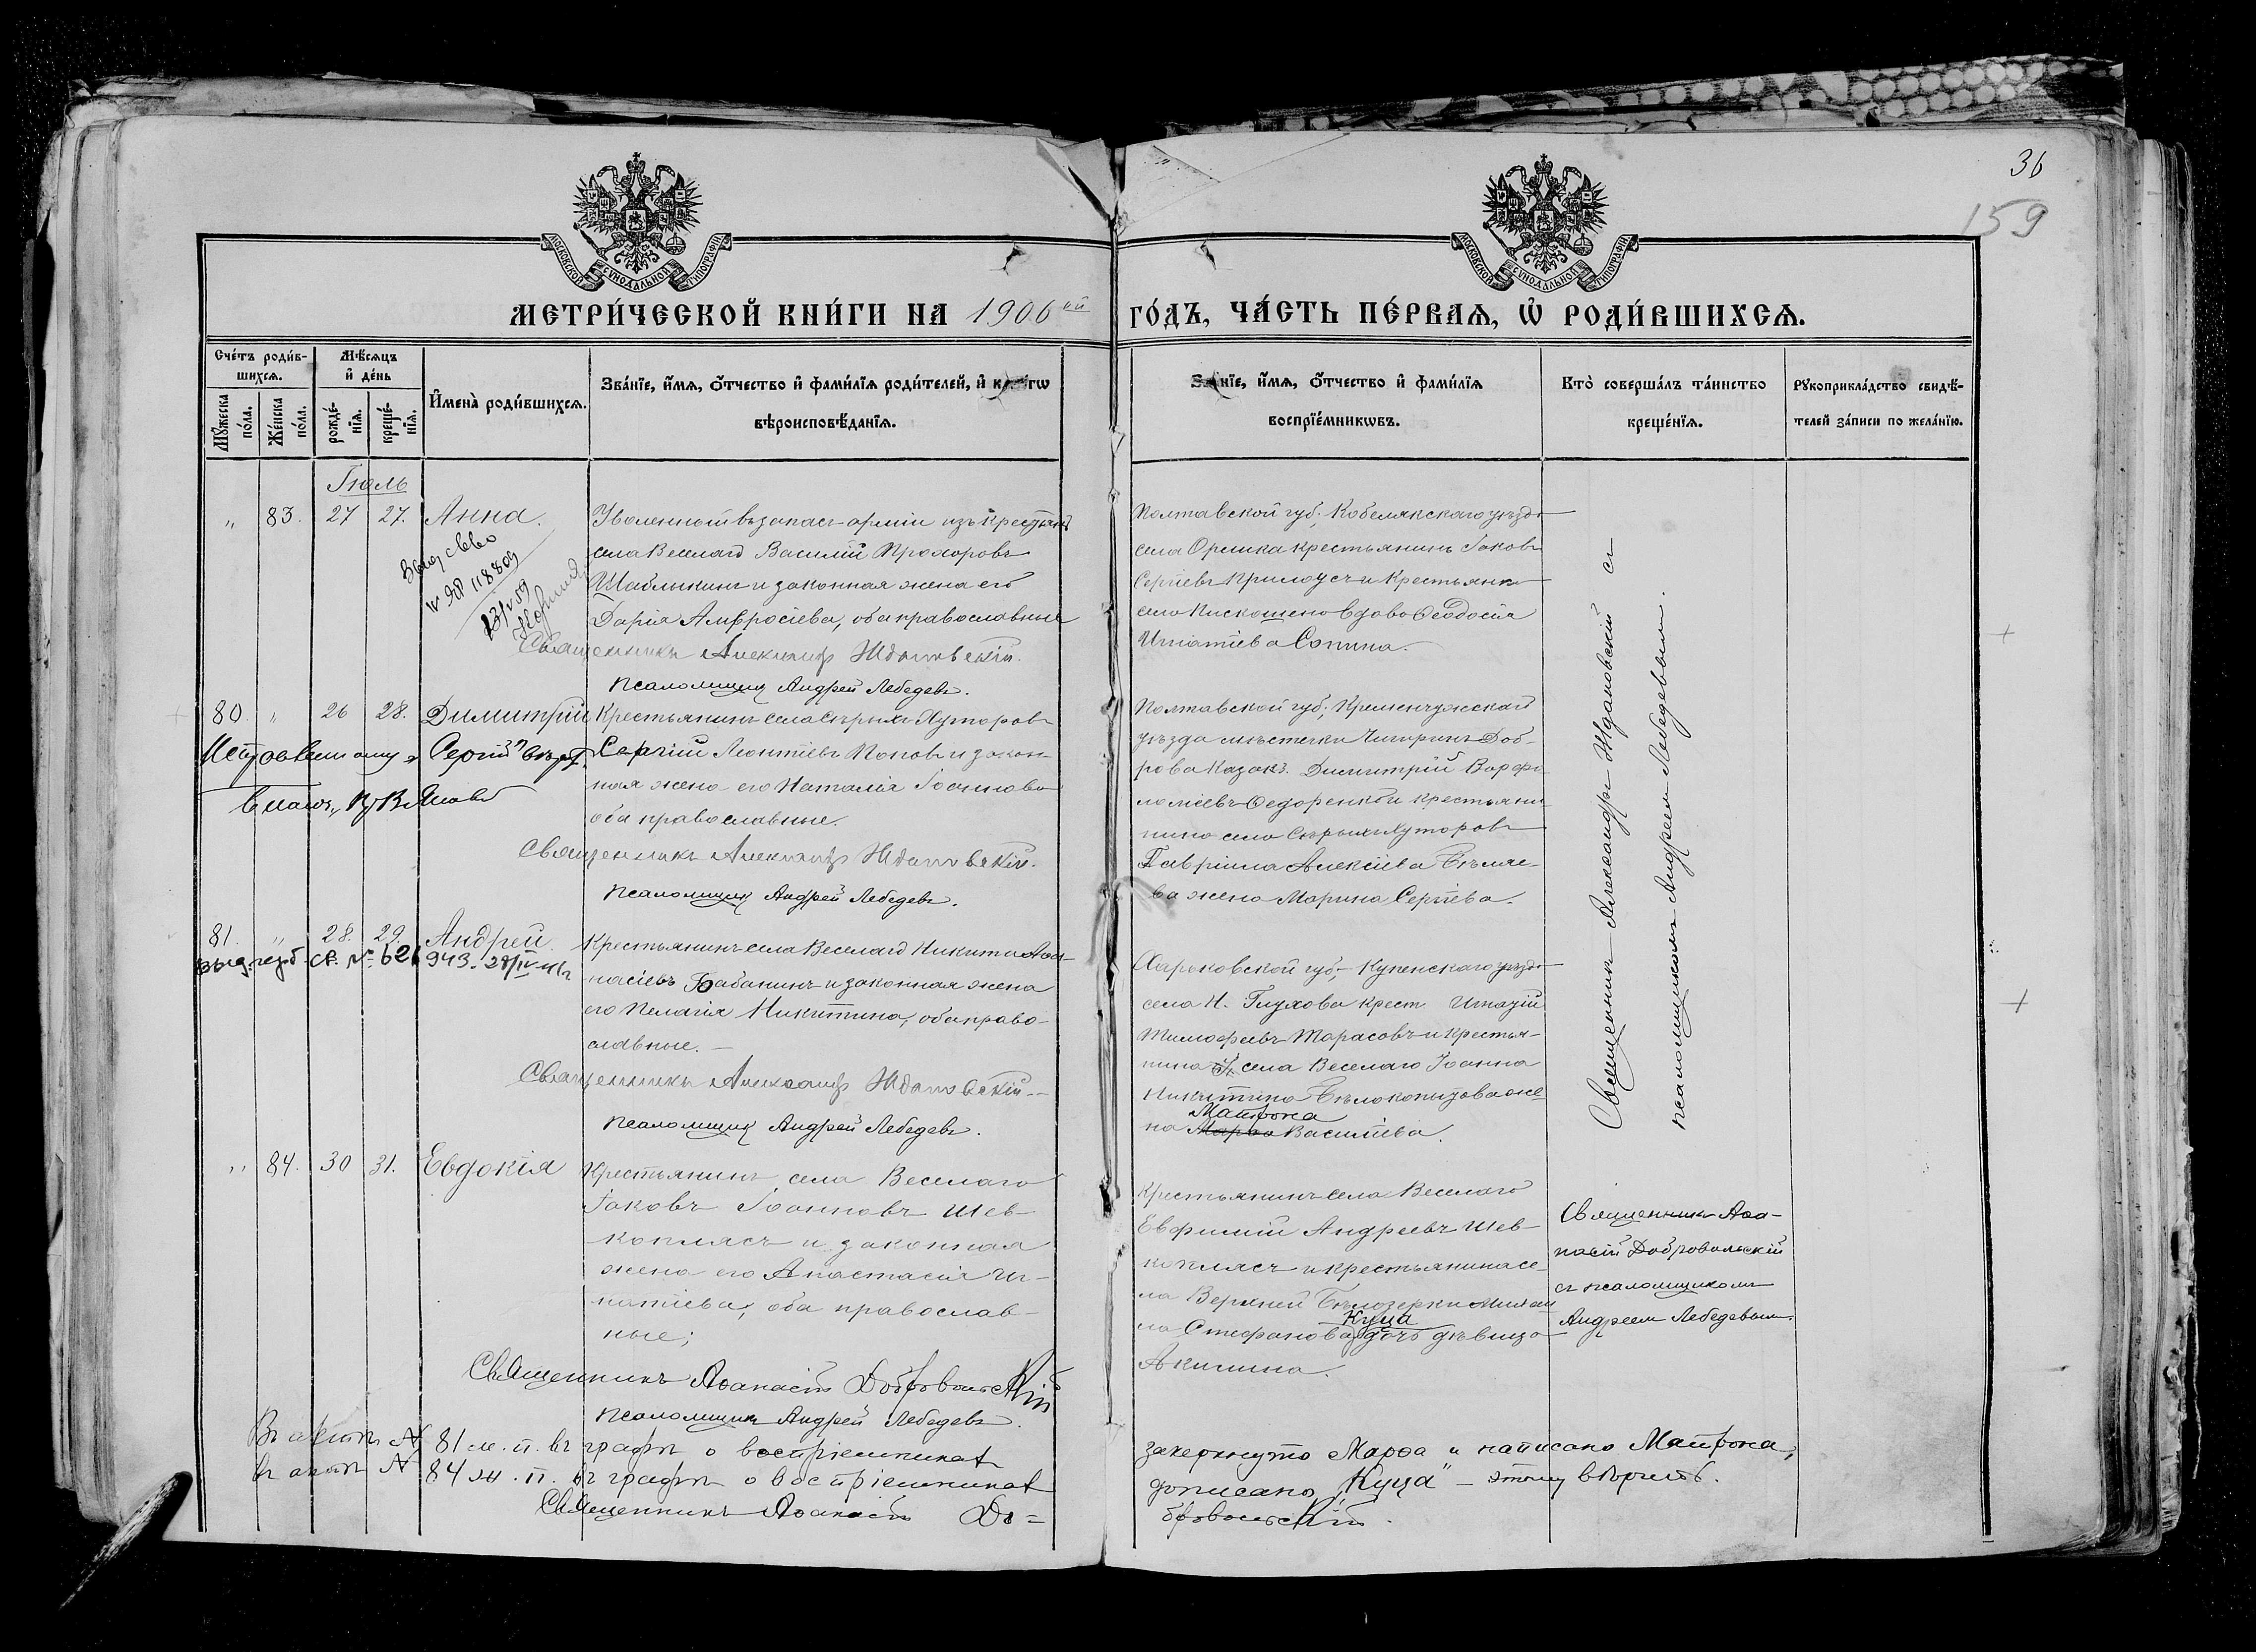 36
159
МОСКОВСКОЙ СУНОДАЛЬНОЙ ТИПОГРАФІИ
МОСКОВСКОЙ СУНОДАЛЬНОЙ ТИПОГРАФІИ
МЕТРИ́ЧЕСКОЙ КНИ́ГИ НА 1906 ой ГО́ДЪ, ЧА́СТЬ ПЕ́РВАѦ, Ѡ҆ РОДИ́ВШИХСѦ.
Сче́тъ роди́в-
шихсѧ.
Мꙋжеска по́ла.
Же́нска по́ла.
Мѣ́сѧцъ
и҆ де́нь
рожде́-
нїѧ.
креще́-
нїѧ.
И҆мена̀ роди́вшихсѧ.
Зва́нїе, и҆́мѧ, ѻ҆́тчество и҆ фами́лїѧ роди́телей, и҆
вѣроисповѣ́данїѧ.
и҆́мѧ, ѻ҆́тчество и҆ фами́лїѧ
воспрїе́мникѡвъ.
Кто̀ соверша́лъ та́инство
креще́нїѧ.
Рꙋкоприкла́дство свидѣ́-
телей за́писи по жела́нїю.
Іюль
„ 83. 27 27. Анна.
Уволенный въ запасъ арміи изъ крестьянъ
села Веселаго Василій Прохоровъ
Шаблыкинъ и законная жена его
Дарія Амвросіева, оба православные
Священникъ Александръ Ждановскій.
Псаломщикъ Андрей Лебедевъ.
Полтавской губ., Кобелякскаго уѣзда
села Орлика крестьянинъ Іаковъ
Сергіевъ Прилоусъ и крестьянка
села Пискошено вдова Ѳеодосія
Игнатіева Сопина.
80. „ 26 28. Димитрій
Сергій
Крестьянинъ села Сѣрыхъ Хуторовъ
Сергій Леонтіевъ Поповъ и закон-
ная жена его Наталія Іоаннова
оба православные.
Священникъ Александръ Ждановскій.
Псаломщикъ Андрей Лебедевъ.
Полтавской губ., Кременчужскаго
уѣзда мѣстечка Чигиринъ-Доб-
рова казакъ Димитрій Варфо
ломіевъ Федоренко и крестьяни
нина села Сѣрыхъ Хуторовъ
Гавріила Алексіева Бѣляе-
ва жена Марина Сергіева.
81. „ 28. 29. Андрей.
№ 621 943. 28/IV
Крестьянинъ села Веселаго Никита Аѳа-
насіевъ Бабанинъ и законная жена
его Пелагія Никитина, оба право-
славные. —
Священникъ Александръ Ждановскій. -
Псаломщикъ Андрей Лебедевъ.
Харьковской губ., Купенскаго уѣзда
села Н. Глухова крест. Игнатій
Тимоѳеевъ Тарасовъ и крестья-
нина села Веселаго Іоанна
Никитина Бѣлокопытова же
Матрона
на Марѳа Васильева.
Священникъ Александръ Ждановскій съ
псаломщикомъ Андреемъ Лебедевымъ.
„ 84. 30 31. Евдокія
Крестьянинъ села Веселаго
Іаковъ Іоанновъ Шев-
коплясъ и законная
жена его Анастасія Иг-
натіева, оба православ-
ные;
Священникъ Аѳанасій Добровольскій
Псаломщикъ Андрей Лебедевъ.
Крестьянинъ села Веселаго
Евфимій Андреевъ Шев-
коплясъ и крестьянина се-
ла Верхней Бѣлозерки Михаи
Куца
ла Стефанова дочь дѣвица
Акилина.
Священникъ Аѳа-
насій Добровольскій
съ псаломщикомъ
Андреем Лебедевымъ.
Въ актѣ № 81 м. п. въ графѣ о воспріемникахъ зачеркнуто Марѳа и написано Матрона,
въ актѣ № 84 ж. п. въ графѣ о воспріемникахъ дописано „Куца" – этому вѣрить.
Священникъ Аѳанасій До=бровольскій.